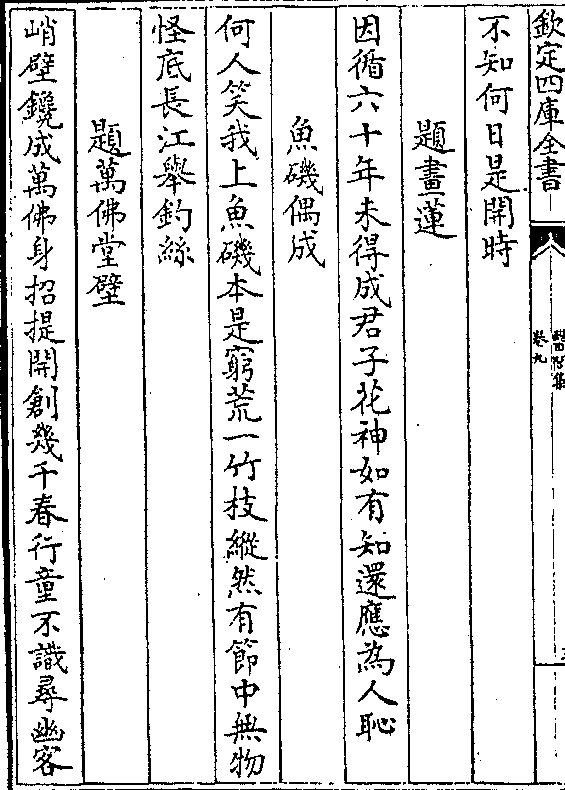 欽定四庫全書
卷九
不知何日是開時
題畫蓮
因循六十年未得成君子花神如有知還應為人恥
魚磯偶成
何人笑我上魚磯本是窮荒一竹枝縱然有節中無物
怪底長江舉釣絲
題萬佛堂壁
峭壁鑱成萬佛身招提開創幾千春行童不識尋幽客